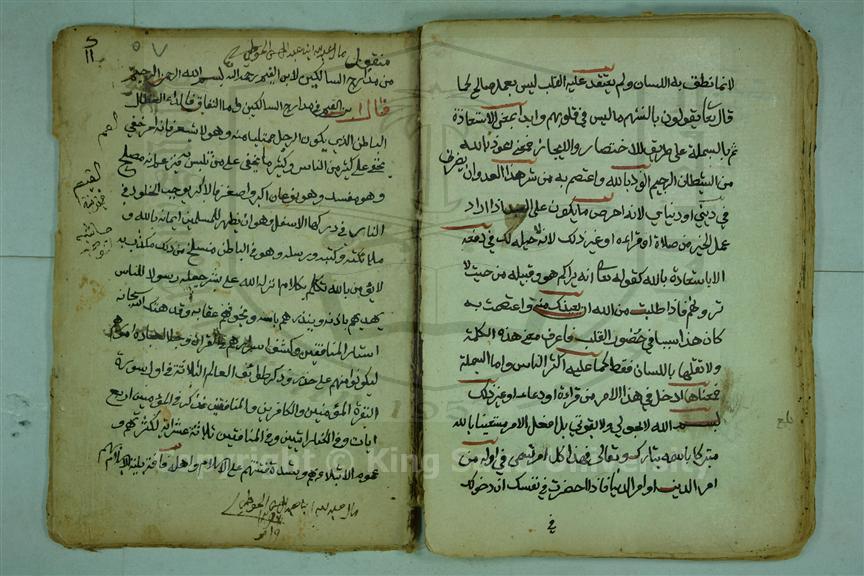 لانما نطق به اللسان ولم يعتقد عليه القلب ليس بعمل صالح كما
قال تعا يقولون بالسنتهم ما ليس في قلوبهم وابدا بمعنى الاستعاذة
ثم بالبسملة على طريق الاختصار والايجاز فمعنى اعوذ بالله
من الشيطان الرجيم الوذ بالله واعتصم به من شر هذا العدو ان يضرني
في ديني او دنياي لانه احرص ما يكون على العبد اذا اراد
عمل الخير من صلاة او قراءة او غير ذلك لانه لا حيلة لك في دفعه
الا باستعاذة بالله كقوله تعالى انه يراكم هو وقبيله من حيث لا
ترونهم فاذا طلبت من الله ان يعينك منه واعتصمت به
كان هذا سببا في حضور القلب فاعرف معنى هذه الكلمة
ولا تقلها باللسان فقط كما عليه اكثر الناس واما البسملة
فمعناها ادخل في هذا الامر من قراءة او دعاء او غير ذلك
بسم الله لا بحولي ولا بقوتي بل افعل الامر مستعينا بالله
متبركا باسمه تبارك وتعالى فهذا كل امر تسمي في اوله من
امر الدين او امر الدنيا فاذا احضرت في نفسك ان دخولك
في
منقول
من مدارج السالكين لابن القيم رحمه الله بسم الله الرحمن الرحيم
قال ابن القيم في مدارج السالكين واما النفاق فالداء العضال
الباطن الذي يكون الرجل ممتليا منه وهو لا يشعر فانه امر خفي
يخفى على كثير من الناس وكثيرا ما يخفى على من تلبس به فيزعم انه مصلح
وهو مفسد وهو نوعان اكبر واصغر فالاكبر يوجب الخلود في
النار في دركها الاسفل وهو ان يظهر للمسلمين ايمانه بالله و
ملائكته وكتبه ورسله وهو في الباطن منسلخ من ذلك مكذب به
لا يؤمن بالله تكلم بكلام انزله الله على بشر جعله رسولا للناس
يهديهم باذنه وينذرهم باسه ويخوفهم عقابه وقد هتك الله سبحانه
استار المنافقين وكشف اسرارهم في القرآن وجلا لعباده امورهم
ليكونوا منهم على حذر وذكر طوائف العالم الثلاثة في اول سورة
البقرة المؤمنين والكافرين والمنافقين فذكر في المؤمنين اربع
ايات وفي الكفار ايتين وفي المنافقين ثلاثة عشر اية لكثرتهم و
عموم الابتلاء بهم وشدة فتنتهم على الاسلام واهله
Copyright © King Saud University
1957